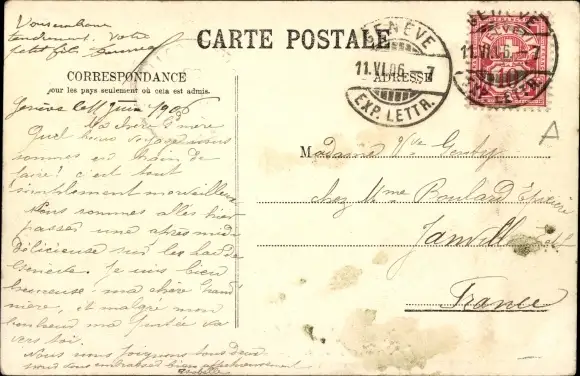 Vous embrasse
tendrement. Votre
petit fils
CARTE POSTALE
CORRESPONDANCE
Pour les pays seulement où cela est admis.
ADRESSE
GENÈVE
11.VI.06. - 7
EXP. LETTR.
GENÈVE
11.VI.06. - 7
EXP. LETTR.
HELVETIA
10
A
Genève le 11 Juin 1906
Ma chère Gd mère
Quel beau voyage nous
sommes en train de
faire! c'est tout
simplement merveilleux.
Nous sommes allés hier
passer une après midi
délicieuse sur les
Je suis bien
heureuse ma chère Grand
mère, et malgré mon
bonheur ma pensée va
vers toi.
Nous nous joignons tous deux
pour vous embrasser bien affectueusement
Madame Vve
chez Mme Boulard Épicière
Janville
France